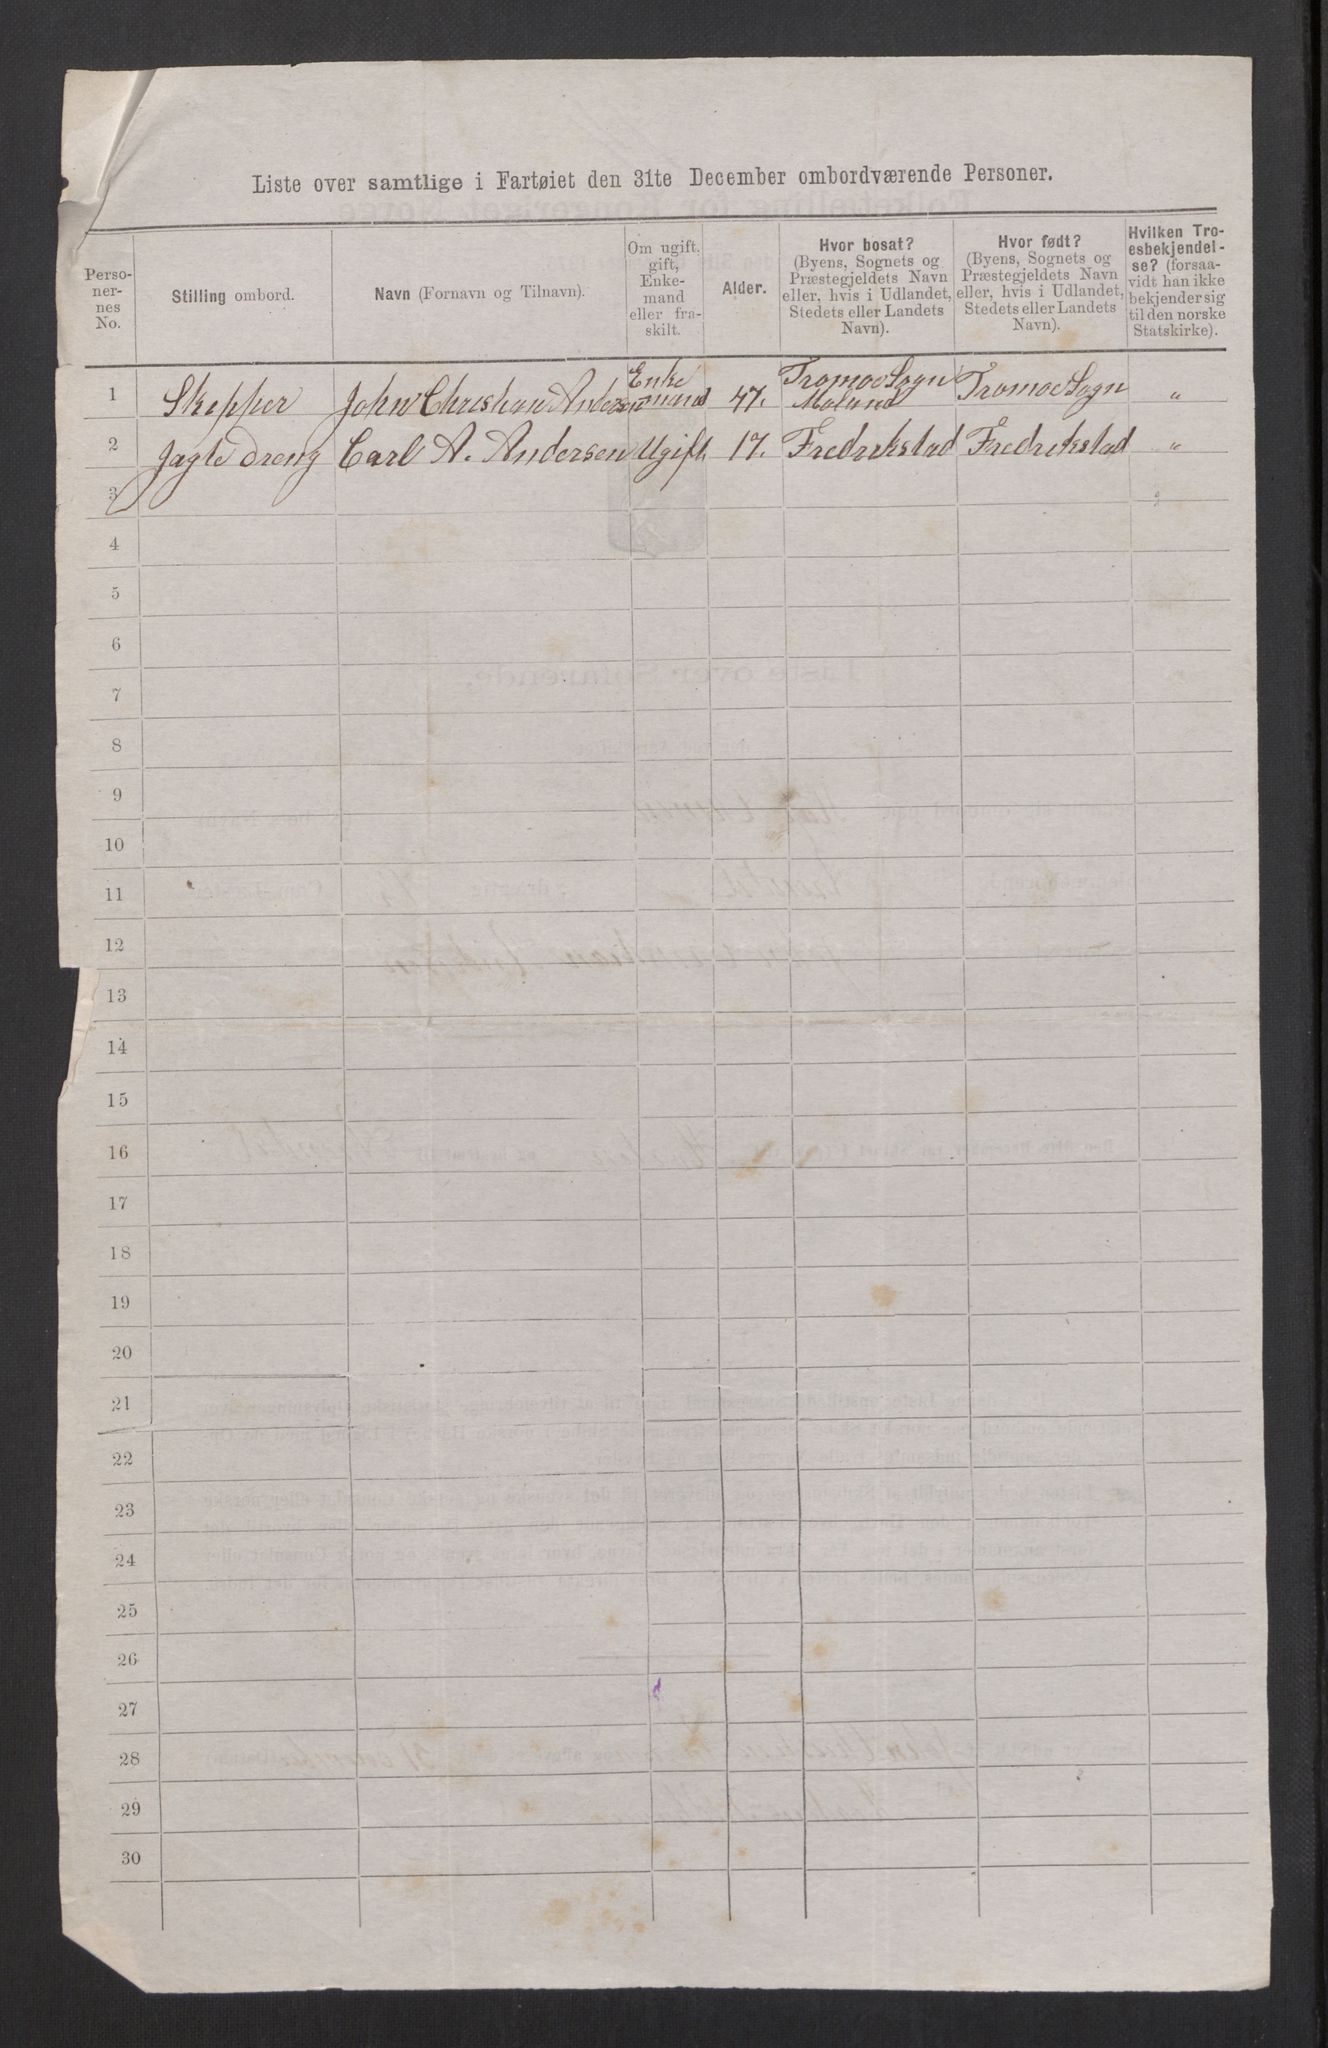 Liste over samtlige i Fartøiet den 31te December ombordværende Personer.
Perso-
ner-
nes
No.
Stilling ombord.
Navn (Fornavn og Tilnavn).
Om ugift,
gift,
Enke-
mand
eller fra-
skilt.
Alder.
Hvor bosat?
(Byens, Sognets og
Præstegjeldets Navn
eller, hvis i Udlandet,
Stedets eller Landets
Navn).
Hvor født?
(Byens, Sognets og
Præstegjeldets Navn
eller, hvis i Udlandet,
Stedets eller Landets
Navn).
Hvilken Tro-
esbekjendel-
se? (forsaa-
vidt han ikke
bekjender sig
til den norske
Statskirke).
1 Skepper John Christian Andersen Enke mand 47. Tromoe Sogn Moland Tromoe Sogn "
2 Jagte dreng Carl A. Andersen Ugift. 17. Fredrikstad Fredrikstad "
3
4
5
6
7
8
9
10
11
12
13
14
15
16
17
18
19
20
21
22
23
24
25
26
27
28
29
30